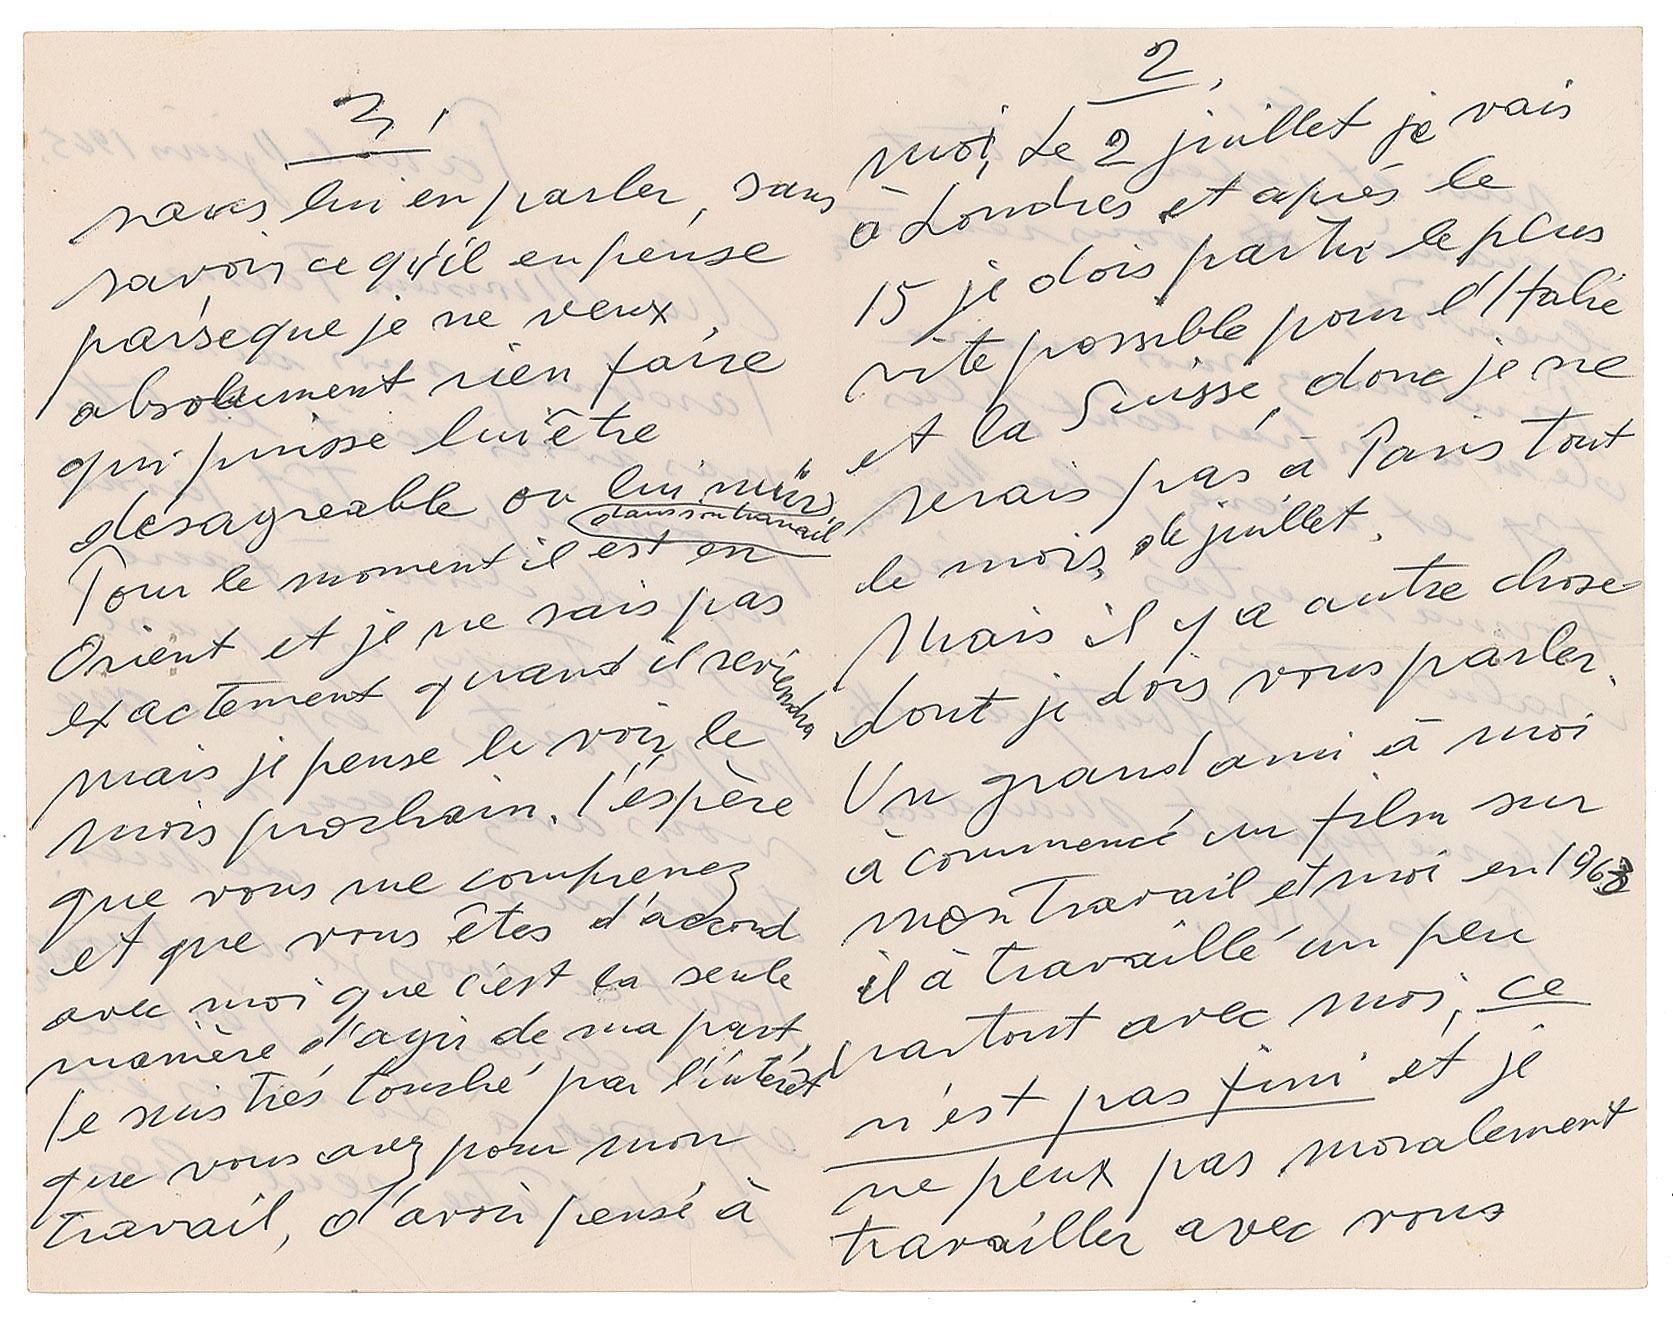 2.
moi, Le 2 juillet je vais
à Londres et aprés le
15 je dois partir le plus
vite possible pour l'Italie
et la Suisse, donc je ne
serais pas à Paris tout
le mois de juillet.
Mais il y a autre chose
dont je dois vous parler.
Un grand ami à moi
à commencé un film sur
mon travail et moi en 1963
il à travaillé un peu
partout avec moi, ce
n'est pas fini et je
ne peux pas moralement
travailler avec vous
3.
sans lui en parler, sans
savoir ce qu'il en pense
parseque je ne veux
absolument rien faire
qui puisse lui être
désagreable ou lui nuir
dans son travail
Pour le moment il est en
Orient et je ne sais pas
exactement quand il reviendra
mais je pense le voir le
mois prochain. J'éspère
que vous me comprenez
et que vous êtes d'accord
avec moi que c'est la seule
manière d'agir de ma part,
Je suis trés touché par l'intérêt
que vous avez pour mon
travail, d'avoir pensé à